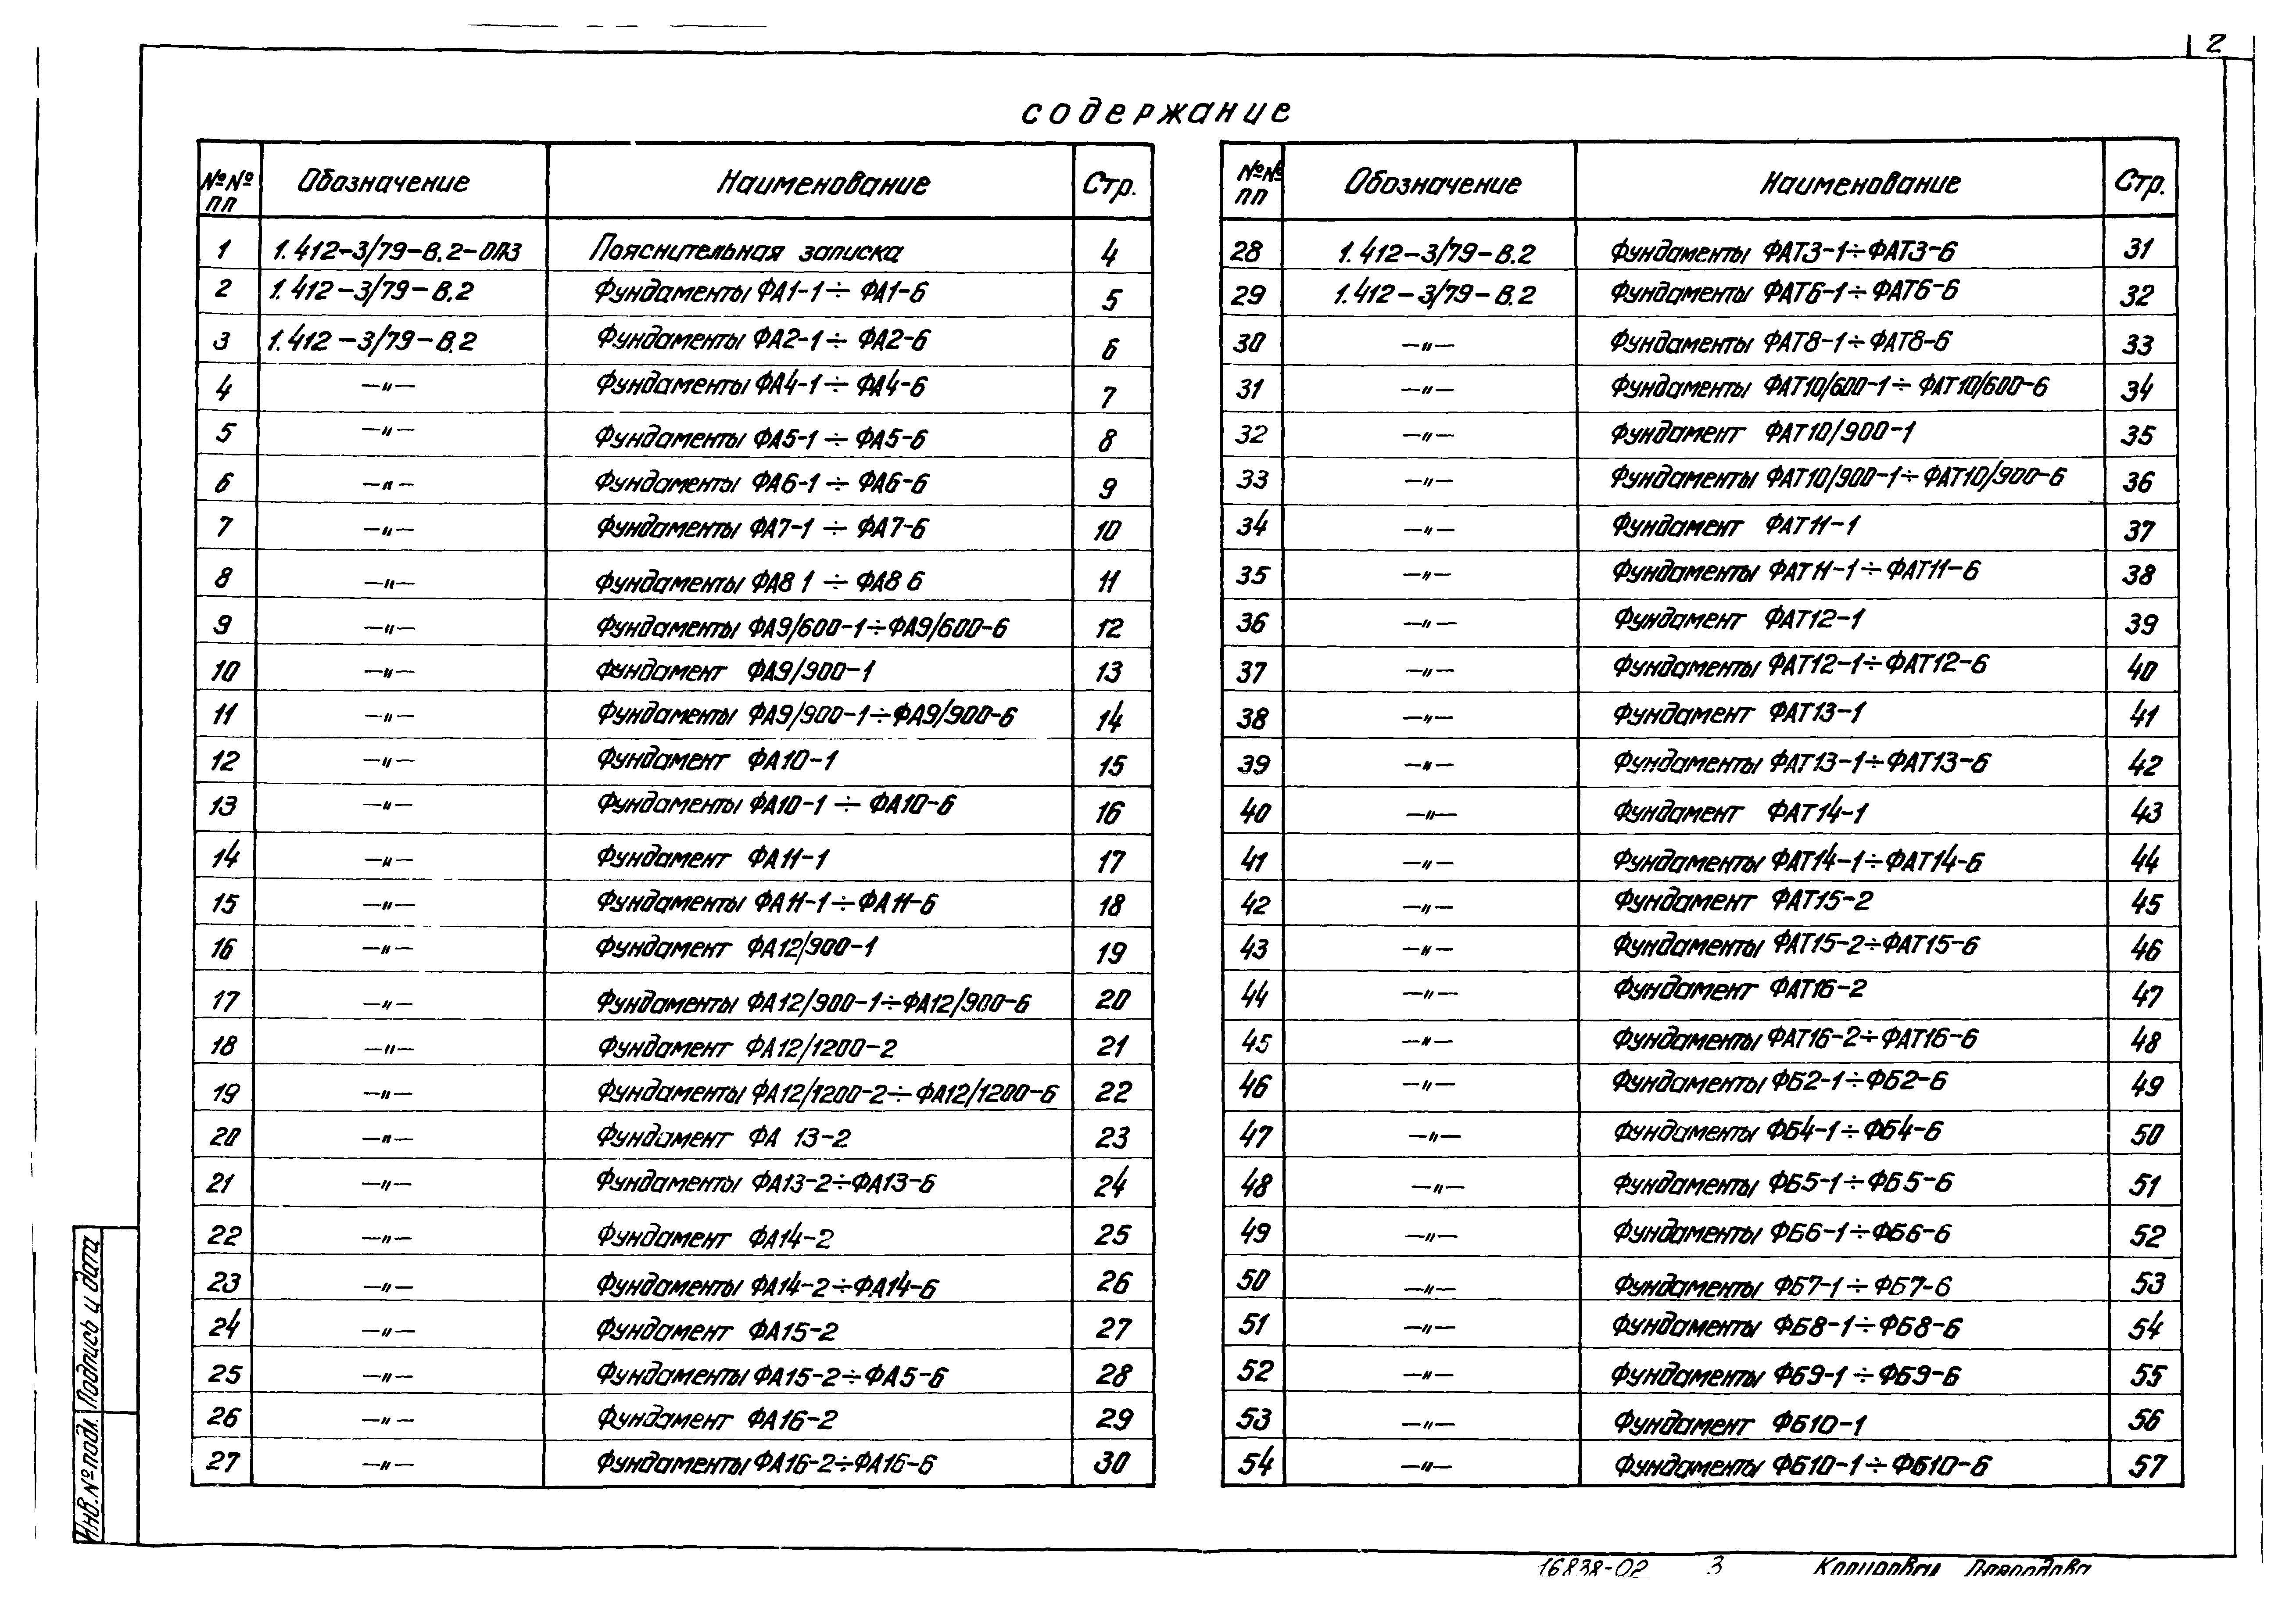 2
содержание
№№ пп Обозначение Наименование Стр.
1 1.412-3/79-В.2-ОПЗ Пояснительная записка 4
2 1.412-3/79-В.2 Фундаменты ФА1-1÷ФА1-6 5
3 1.412-3/79-В.2 Фундаменты ФА2-1÷ФА2-6 6
4 —"— Фундаменты ФА4-1÷ФА4-6 7
5 —"— Фундаменты ФА5-1÷ФА5-6 8
6 —"— Фундаменты ФА6-1÷ФА6-6 9
7 —"— Фундаменты ФА7-1÷ФА7-6 10
8 —"— Фундаменты ФА8 1÷ФА8 6 11
9 —"— Фундаменты ФА9/600-1÷ФА9/600-6 12
10 —"— Фундамент ФА9/900-1 13
11 —"— Фундаменты ФА9/900-1÷ФА9/900-6 14
12 —"— Фундамент ФА10-1 15
13 —"— Фундаменты ФА10-1÷ФА10-6 16
14 —"— Фундамент ФА11-1 17
15 —"— Фундаменты ФА11-1÷ФА11-6 18
16 —"— Фундамент ФА12/900-1 19
17 —"— Фундаменты ФА12/900-1÷ФА12/900-6 20
18 —"— Фундамент ФА12/1200-2 21
19 —"— Фундаменты ФА12/1200-2÷ФА12/1200-6 22
20 —"— Фундамент ФА 13-2 23
21 —"— Фундаменты ФА13-2÷ФА13-6 24
22 —"— Фундамент ФА14-2 25
23 —"— Фундаменты ФА14-2÷ФА14-6 26
24 —"— Фундамент ФА15-2 27
25 —"— Фундаменты ФА15-2÷ФА5-6 28
26 —"— Фундамент ФА16-2 29
27 —"— Фундаменты ФА16-2÷ФА16-6 30
№№ пп Обозначение Наименование Стр.
28 1.412-3/79-В.2 Фундаменты ФАТ3-1÷ФАТ3-6 31
29 1.412-3/79-В.2 Фундаменты ФАТ6-1÷ФАТ6-6 32
30 —"— Фундаменты ФАТ8-1÷ФАТ8-6 33
31 —"— Фундаменты ФАТ10/600-1÷ФАТ10/600-6 34
32 —"— Фундамент ФАТ10/900-1 35
33 —"— Фундаменты ФАТ10/900-1÷ФАТ10/900-6 36
34 —"— Фундамент ФАТ11-1 37
35 —"— Фундаменты ФАТ11-1÷ФАТ11-6 38
36 —"— Фундамент ФАТ12-1 39
37 —"— Фундаменты ФАТ12-1÷ФАТ12-6 40
38 —"— Фундамент ФАТ13-1 41
39 —"— Фундаменты ФАТ13-1÷ФАТ13-6 42
40 —"— Фундамент ФАТ14-1 43
41 —"— Фундаменты ФАТ14-1÷ФАТ14-6 44
42 —"— Фундамент ФАТ15-2 45
43 —"— Фундаменты ФАТ15-2÷ФАТ15-6 46
44 —"— Фундамент ФАТ16-2 47
45 —"— Фундаменты ФАТ16-2÷ФАТ16-6 48
46 —"— Фундаменты ФБ2-1÷ФБ2-6 49
47 —"— Фундаменты ФБ4-1÷ФБ4-6 50
48 —"— Фундаменты ФБ5-1÷ФБ5-6 51
49 —"— Фундаменты ФБ6-1÷ФБ6-6 52
50 —"— Фундаменты ФБ7-1÷ФБ7-6 53
51 —"— Фундаменты ФБ8-1÷ФБ8-6 54
52 —"— Фундаменты ФБ9-1÷ФБ9-6 55
53 —"— Фундамент ФБ10-1 56
54 —"— Фундаменты ФБ10-1÷ФБ10-6 57
Инв.№ подл. Подпись и дата
16838-02 3 Копировал